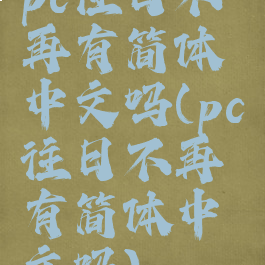 pc往日不
再有简体
中文吗(pc
往日不再
有简体中
文吗)